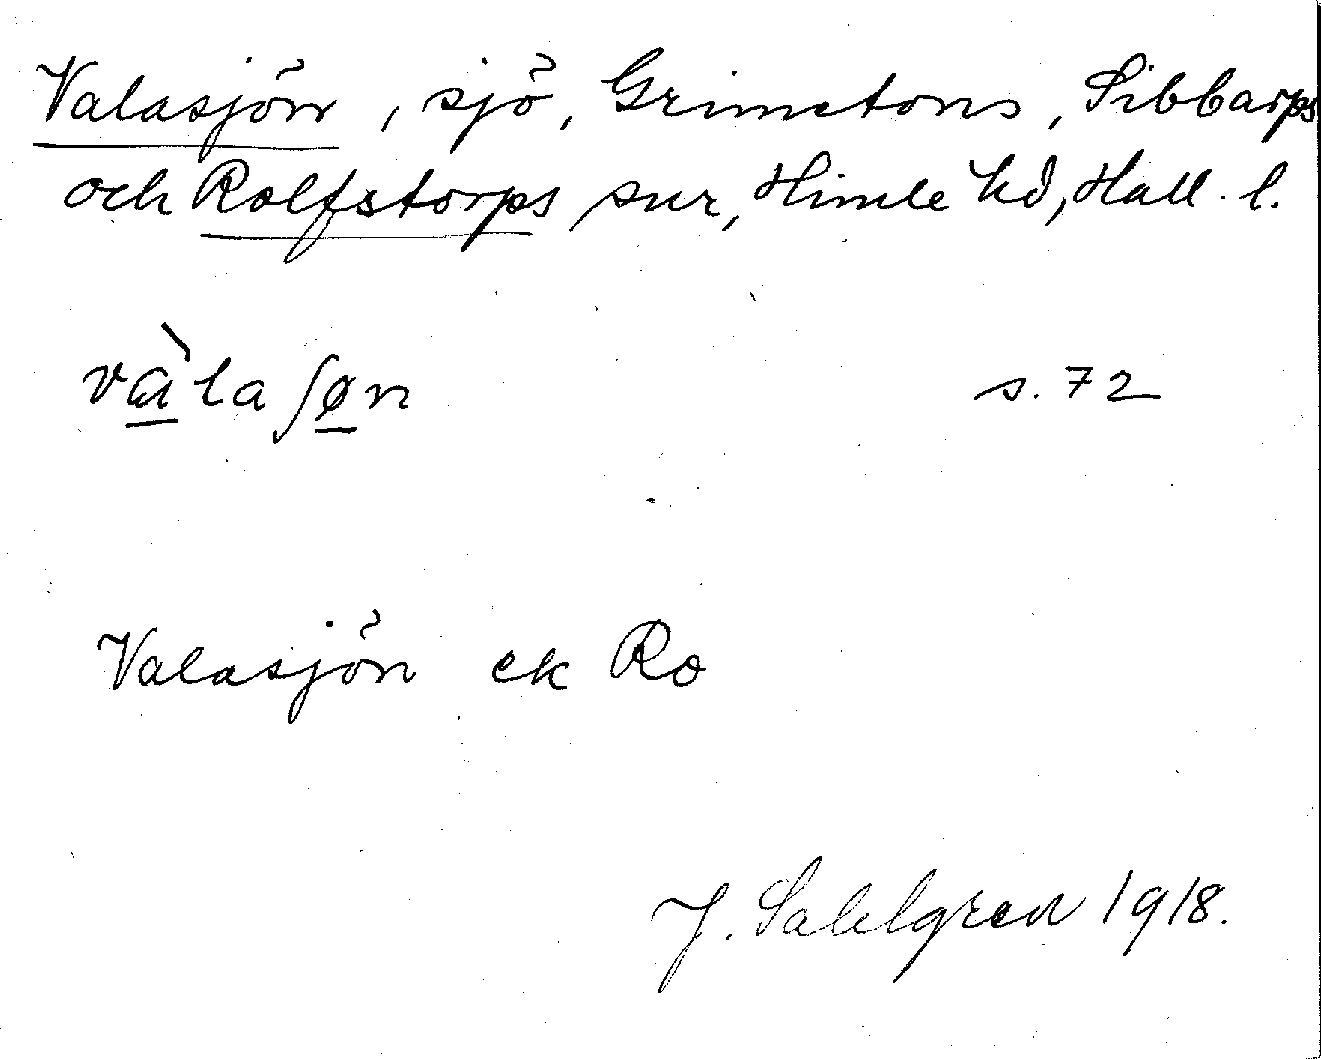 Valasjön, sjö, Grimetons, Sibbarps
och Rolfstorps snr, Himle hd, Hall. l.
vàlaʃøn s. 72
Valasjön ek Ro
J. Sahlgren 1918.